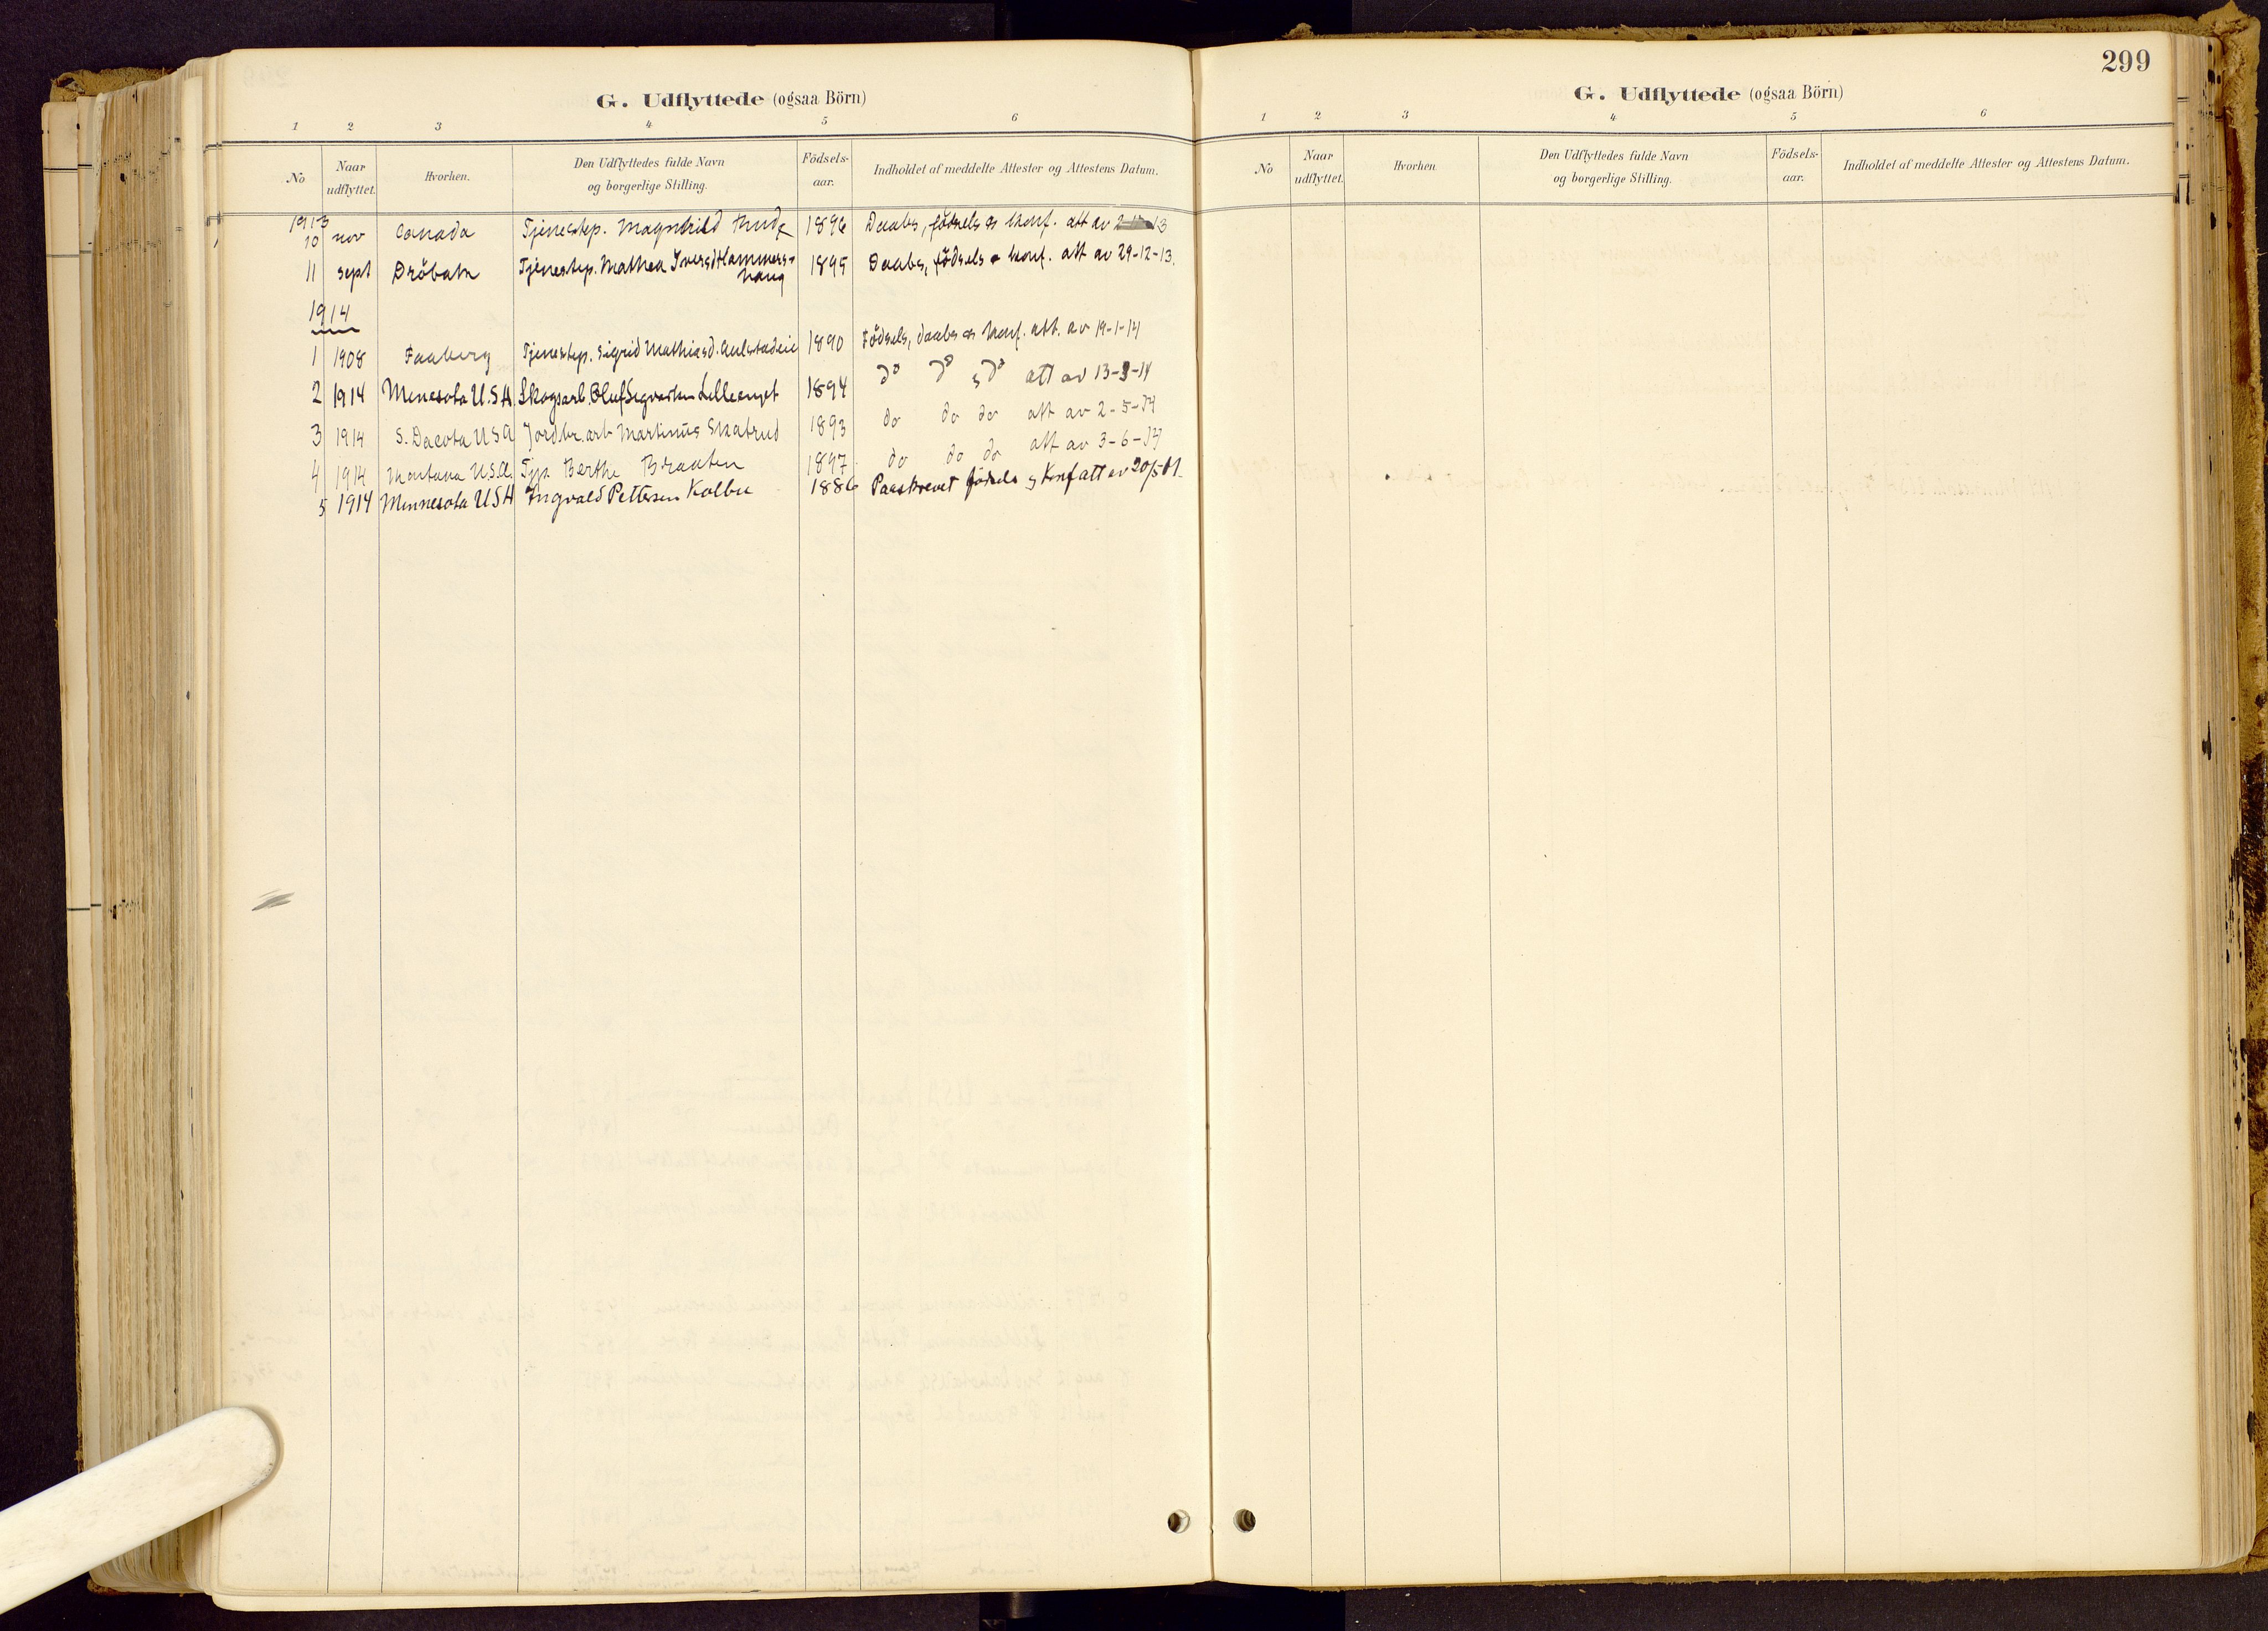 G. Udflyttede (ogsaa Börn)
1 2 3 4 5 6
No Naar udflyttet. Hvorhen. Den Udflyttedes fulde Navn og borgerlige Stilling. Födsels-aar. Indholdet af meddelte Attester og Attestens Datum.
1913
10 nov Canada Tjenestep. Magnhild 1896 Daabs, födsels og konf. att av 13
11 sept Dröbak Tjenestep. Mathea Iversd Hammers-
haug 1895 Daabs, födsels o konf. att av 29-12-13.
1914
1 1908 Faaberg Tjenestep. Sigrid Mathiasd. Aulestadeie 1890 Födsels, daabs og konf. att. av 19-1-14
2 1914 Minesota U.S.A. Skogsarb. Oluf Sigvartsen Lilleenget 1894 do do s do att av 13-3-14
3 1914 S. Dacota USA Jordbr. arb Martinus Skatrud 1893 do do do att av 2-5-14
4 1914 Montana U.S.A. Tjp. Berthe Braaten 1897 do do do att av 3-6-14
5 1914 Minnesota USA Ingvald Pettersen Kolbu 1886 Paaskrevet födsels og Konf att av 20/5 01.
299
G. Udflyttede (ogsaa Börn)
1 2 3 4 5 6
No Naar udflyttet. Hvorhen Den Udflyttedes fulde Navn og borgerlige Stilling. Födsels-aar. Indholdet af meddelte Attester og Attestens Datum.